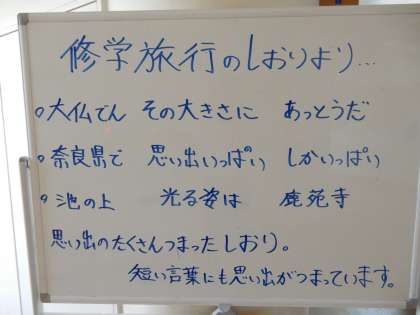 修学旅行のしおりより…
○大仏でん その大きさに あっとうだ
○奈良県で 思い出いっぱい しかいっぱい
○池の上 光る姿は 鹿苑寺
思い出のたくさんつまったしおり。
短い言葉にも思い出がつまっています。